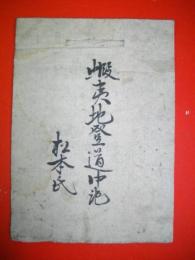 蝦夷地登道中記
松本氏